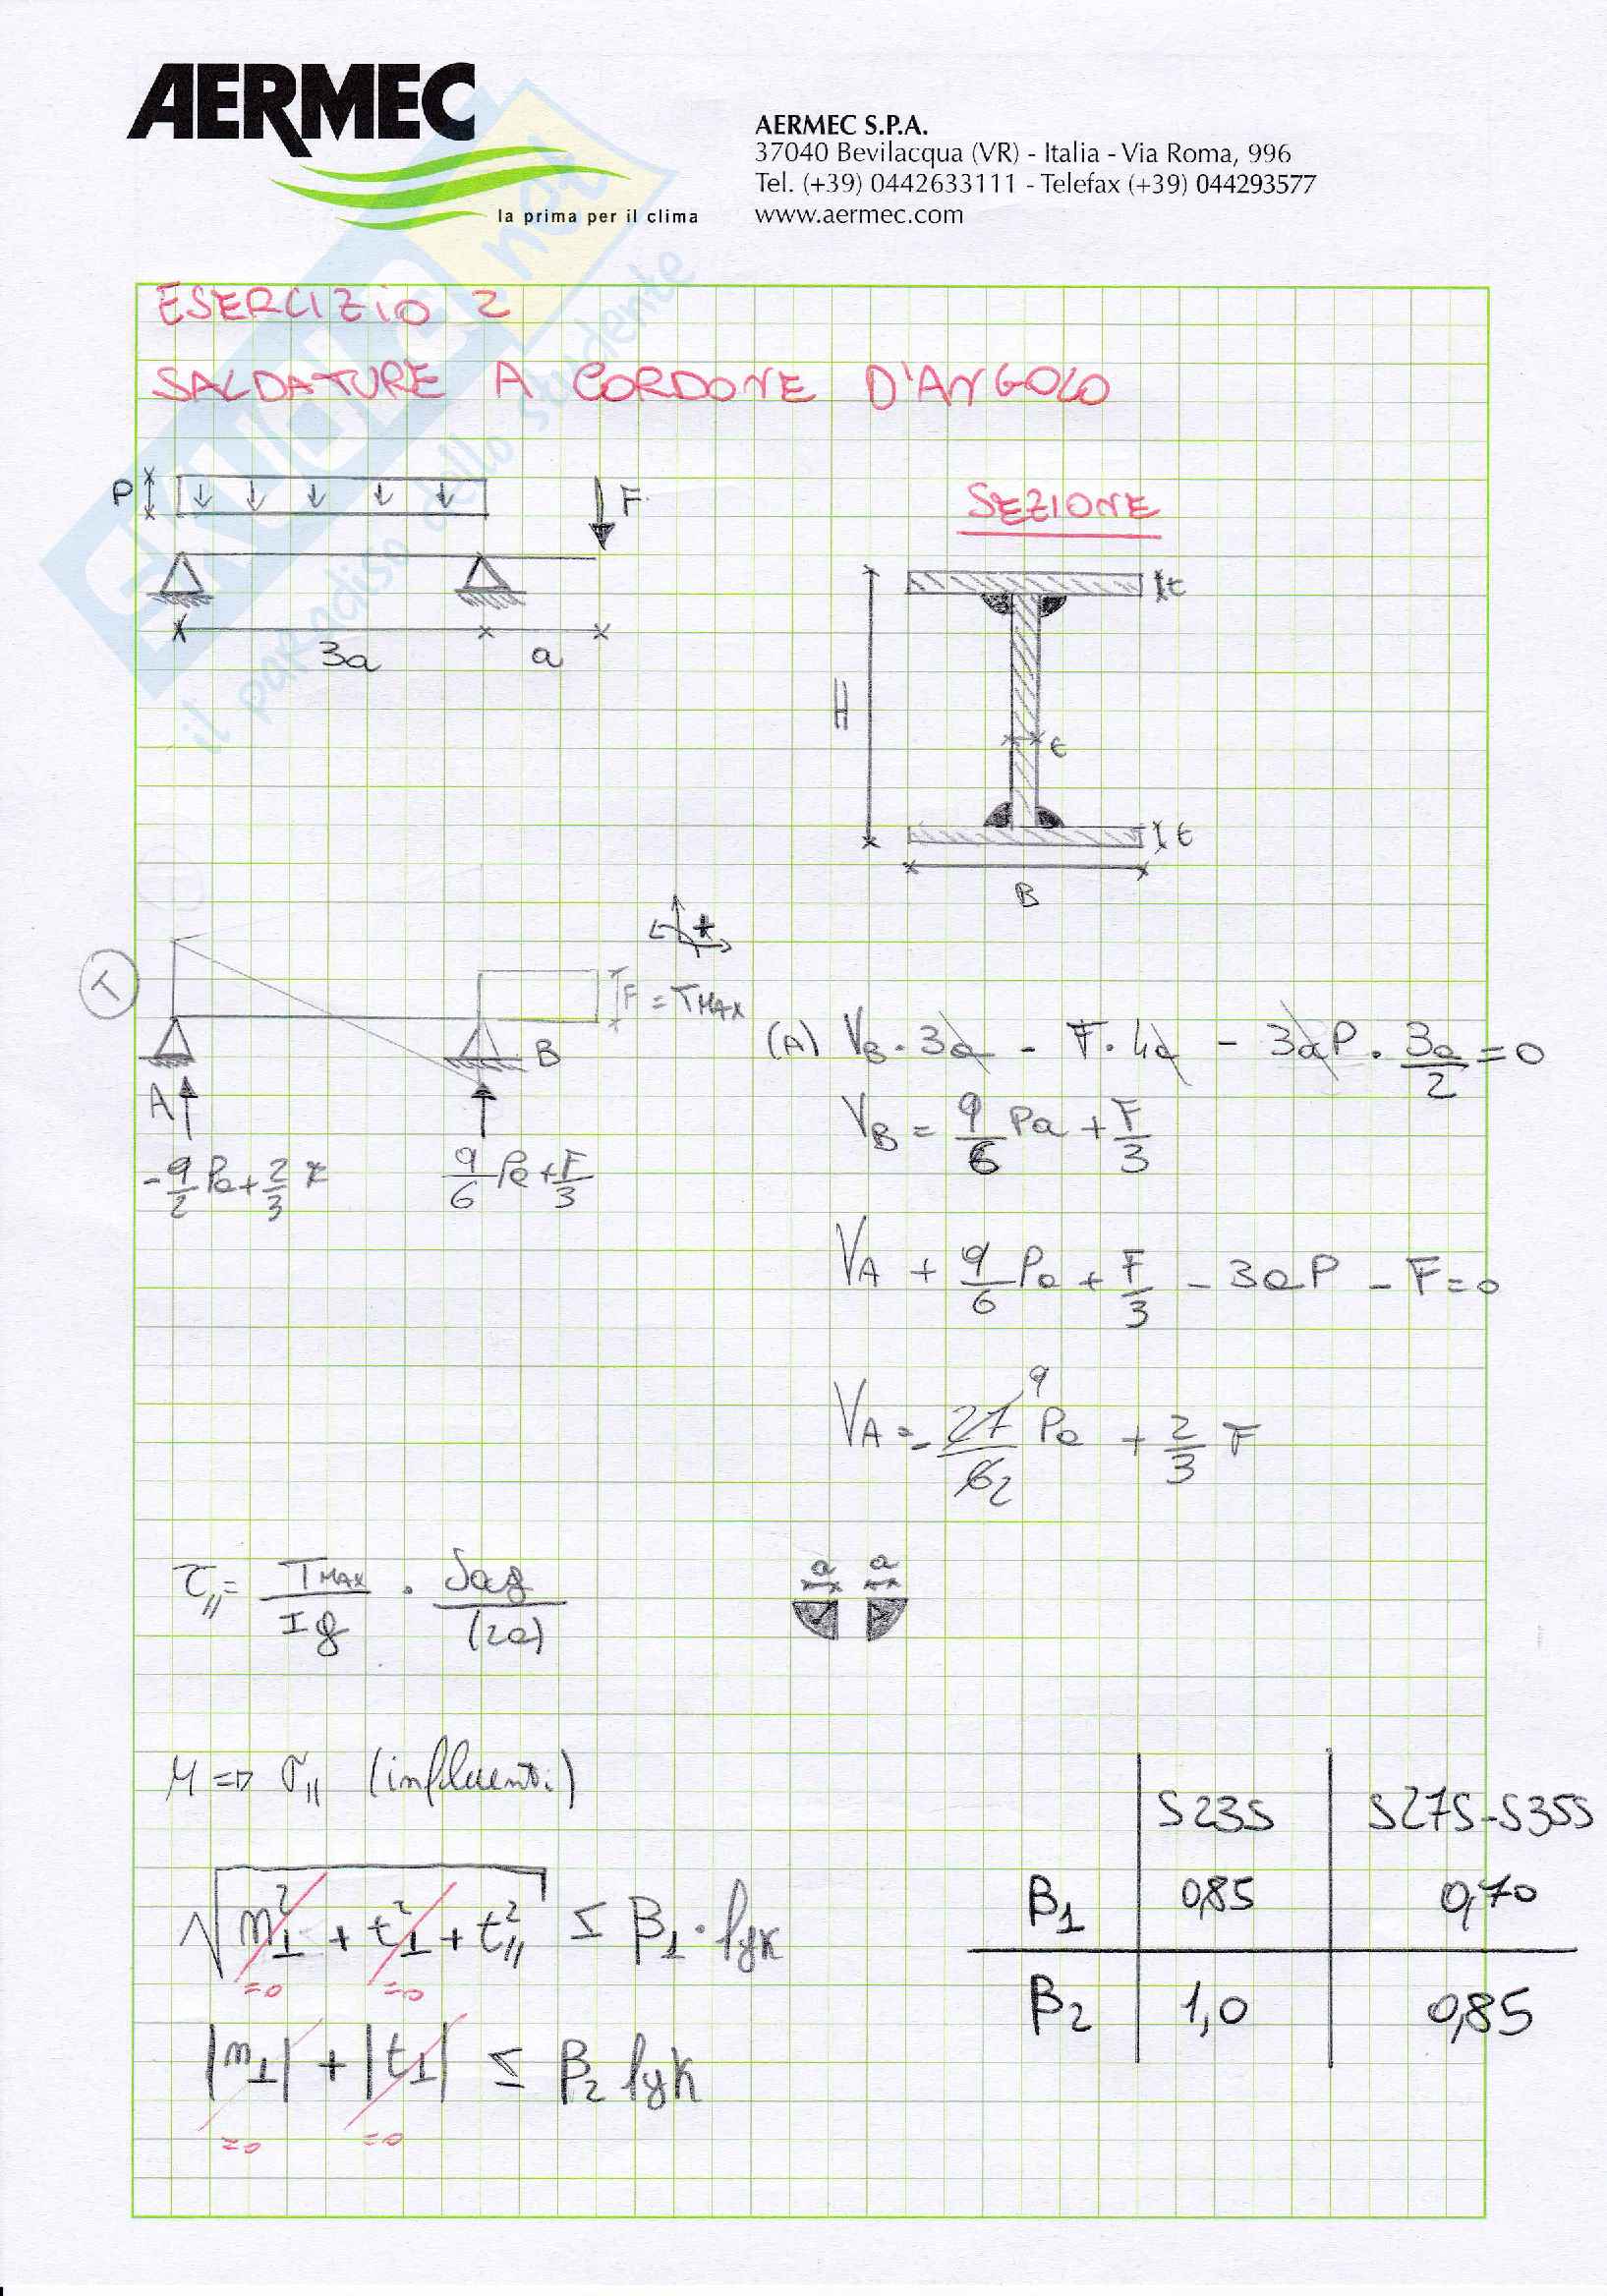 AERMEC
la prima per il clima
AERMEC S.P.A.
37040 Bevilacqua (VR) - Italia - Via Roma, 996
Tel. (+39) 0442633111 - Telefax (+39) 044293577
www.aermec.com
SKUOLA.net
il paradiso dello studente
ESERCIZIO 2
SALDATURE A CORDONE D'ANGOLO
P
F
3a a
SEZIONE
t
H
t
t
B
T
+
F = TMAX
A
B
-9/2 Pa + 2/3 F
9/6 Pa + F/3
(A) VB · 3a - F · 4a - 3aP · 3a/2 = 0
VB = 9/6 Pa + F/3
VA + 9/6 Pa + F/3 - 3aP - F = 0
VA = - 27/6 9/2 Pa + 2/3 F
τ// = TMAX/Ig · Sag/(2a)
a a
M => σ// (influenti)
√(n⊥² + t⊥² + t//²) ≤ β1 · fyk
=0 =0
|n⊥| + |t⊥| ≤ β2 fyk
=0 =0
S235 S275-S355
β1 0,85 0,70
β2 1,0 0,85